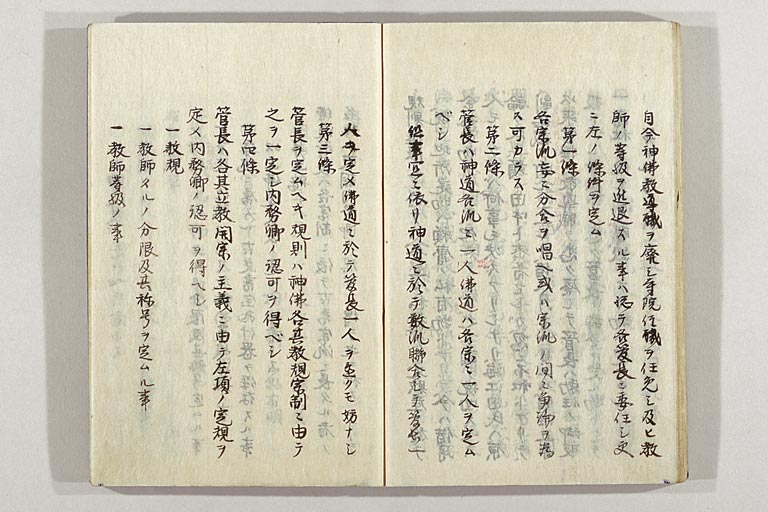 自今神佛教導職ヲ廃シ寺院住職ヲ任免シ及ヒ教
師ノ等級ヲ進退スル事ハ総テ各管長ニ委任シ更
ニ左ノ條件ヲ定ム
第一條
各宗派妄ニ分合ヲ唱ヘ或ハ宗派ノ間ニ争論ヲ為
ス可カラス
第二條
管長ハ神道各派ニ一人佛道ハ各宗ニ一人ヲ定ム
ヘシ
但事宜ニ依リ神道ニ於テ数派聯合シテ管長一
人ヲ定メ佛道ニ於テ管長一人ヲ置クモ妨ナシ
第三條
管長ヲ定ムヘキ規則ハ神佛各其教規宗制ニ由テ
之ヲ一定シ内務卿ノ認可ヲ得ベシ
第四條
管長ハ各其立教開宗ノ主義ニ由テ左項ノ定規ヲ
定メ内務卿ノ認可ヲ得ヘシ
一教規
一教師タルノ分限及其称号ヲ定ムル事
一教師等級ノ事